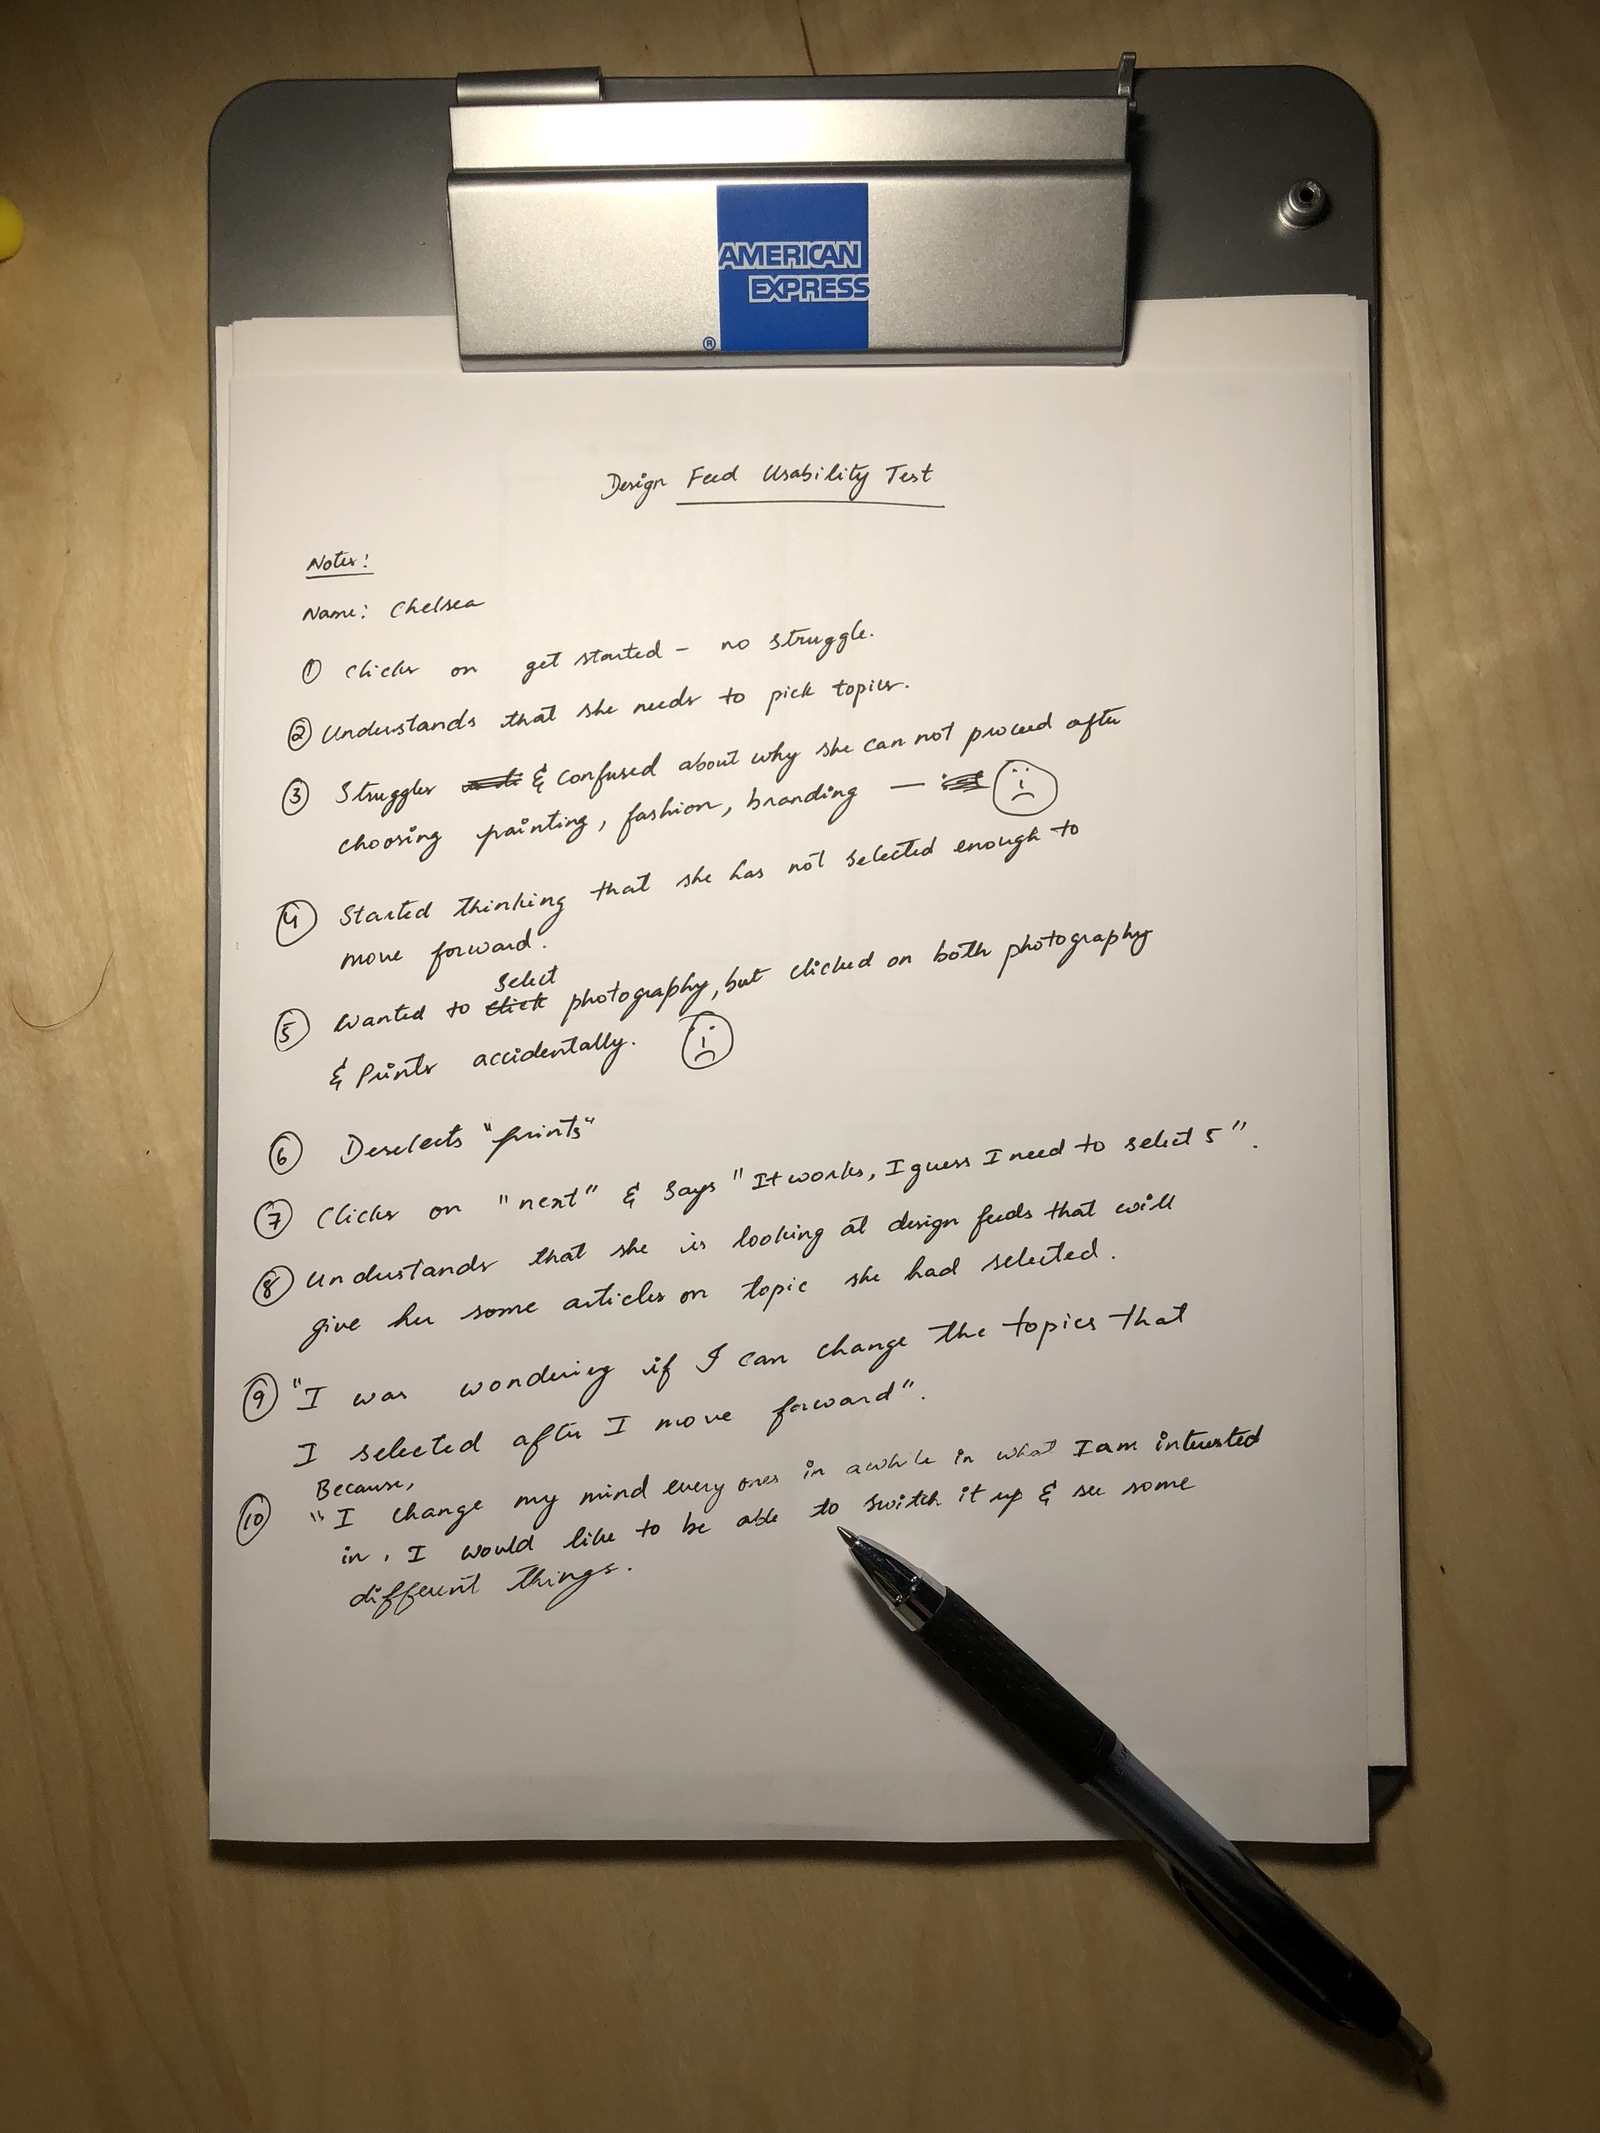 AMERICAN
EXPRESS
®
Design Feed Usability Test
Notes:
Name: Chelsea
① Clicks on get started – no struggle.
② Understands that she needs to pick topics.
③ Struggles & confused about why she can not proceed after
choosing painting, fashion, branding —
④ Started thinking that she has not selected enough to
move forward.
select
⑤ Wanted to click photography, but clicked on both photography
& Prints accidentally.
⑥ Deselects "prints"
⑦ Clicks on "next" & says "It works, I guess I need to select 5".
⑧ Understands that she is looking at design feeds that will
give her some articles on topic she had selected.
⑨ "I was wondering if I can change the topics that
I selected after I move forward".
Because,
⑩ "I change my mind every ones in awhile in what I am interested
in. I would like to be able to switch it up & see some
different things.